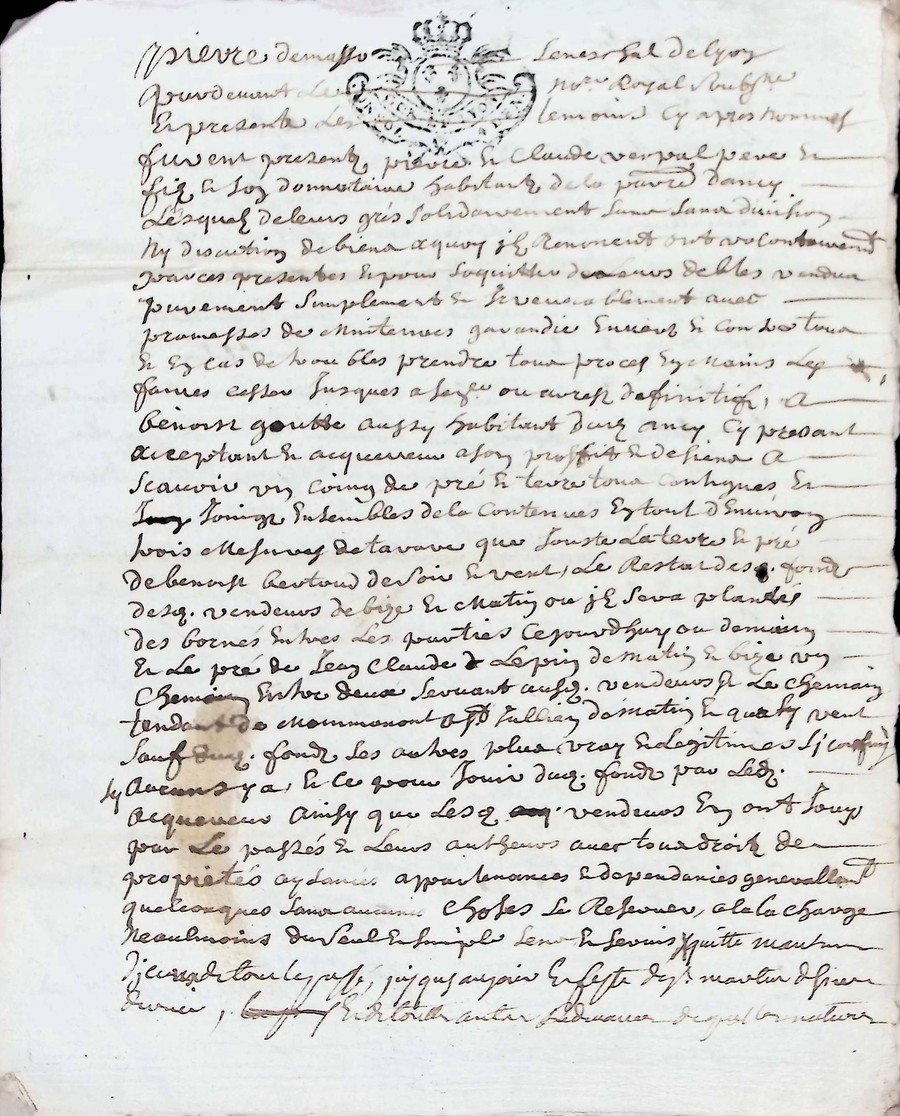 pierre demasso Seneschal de Lyon
pardevant Le no.re Royal Soubs.ne
Et presente Les temoins Cy apres nommes
furent presentz pierre Et Claude verpal pere Et
filz Et Son donnataire habitantz de la parre d'ancy
Lesquelz de leurs grés Solidairement Sans Sans division
Ny discution de biens a quoy jlz Renoncent ont volontairemt
par ces presentes Et pour Saquitter de Leurs debtes vendus
purement Simplement Et Jrrevocablement avec
promesses de Mintenues garandie Envers Et Contre tous
Et En cas de troubles prendre tous proces En Mains Les
faires cesser Jusques a Sen.ce ou arrest definitifz, A
benoist goutte aussy habitant dud ancy Cy presant
acceptant Et acquereur a Son proffit Et de Siens A
Scavoir un Coing de pré Et terre tous Contigues Et
Joingz Ensembles de la Contenues En tout d'Environ
trois Mesures de tarare que Jouste La terre Et pré
de benoist bertoud de Soir Et vent, Le Restat desq. fondz
desq. vendeurs de bize Et Matin ou jl Sera plantés
des bornés Entres Les parties Cejourdhuy ou demain
Et Le pré de Jean Claude Lepin de Matin Et bize un
Chemain Entre deux Servant ausq. vendeurs Et Le Chemain
tendant de Montmonont a St Jullien de Matin Et quasy vent
Sauf dud. fondz Ses autres plus vray Et Legitimes Sj confins
Sy Aucuns y a, Et Ce pour Jouir dud. fondz par Led.
acquereur Ainsy que Lesq vendeurs En ont Jouy
par Le passés Et Leurs autheurs avec tous droitz de
propriétés aysances appartenances Et dependances generallemt
quelconques Sans aucunes Choses Se Reserver, a la la Charge
Neaulmoins du Seul Et Simple Sens Et Servis quitte
de tout le passé, jusquau jour Et feste de St martin d'hiver
dernier, Et de toutte autre de quelle nature